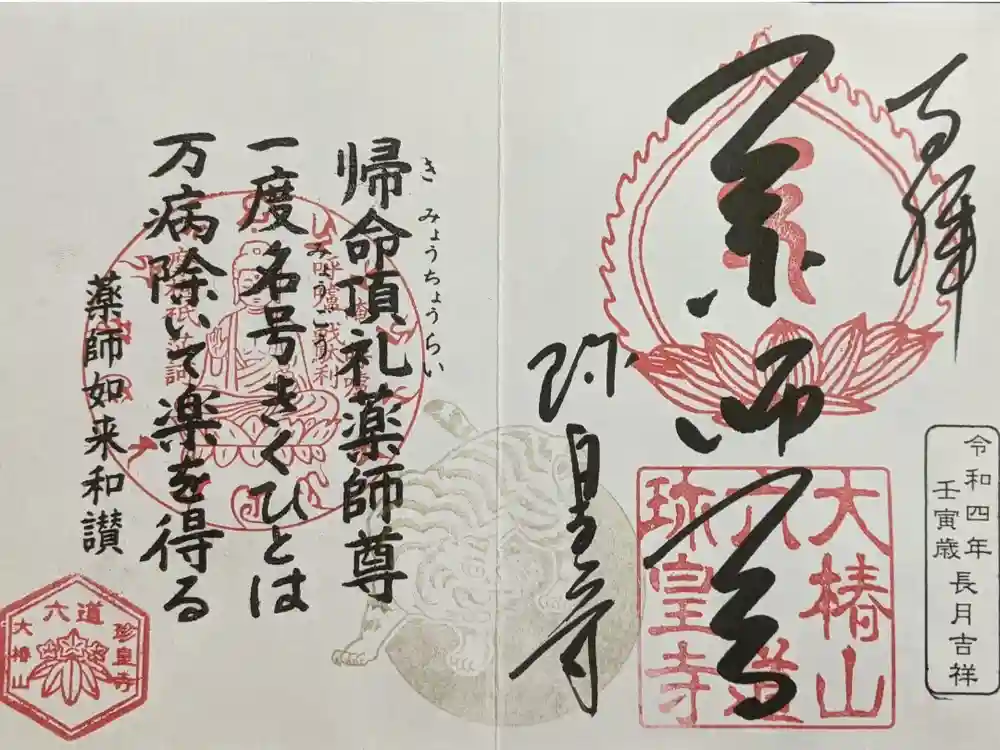 奉拝
令和四年
壬寅歳 長月吉祥
薬師尊
大椿山
六道
珍皇寺
珍皇寺
帰命頂礼薬師尊
き みょうちょうらい
一度名号きくひとは
みょうごう
万病除いて楽を得る
薬師如来和讃
六道
珍皇寺
大椿山